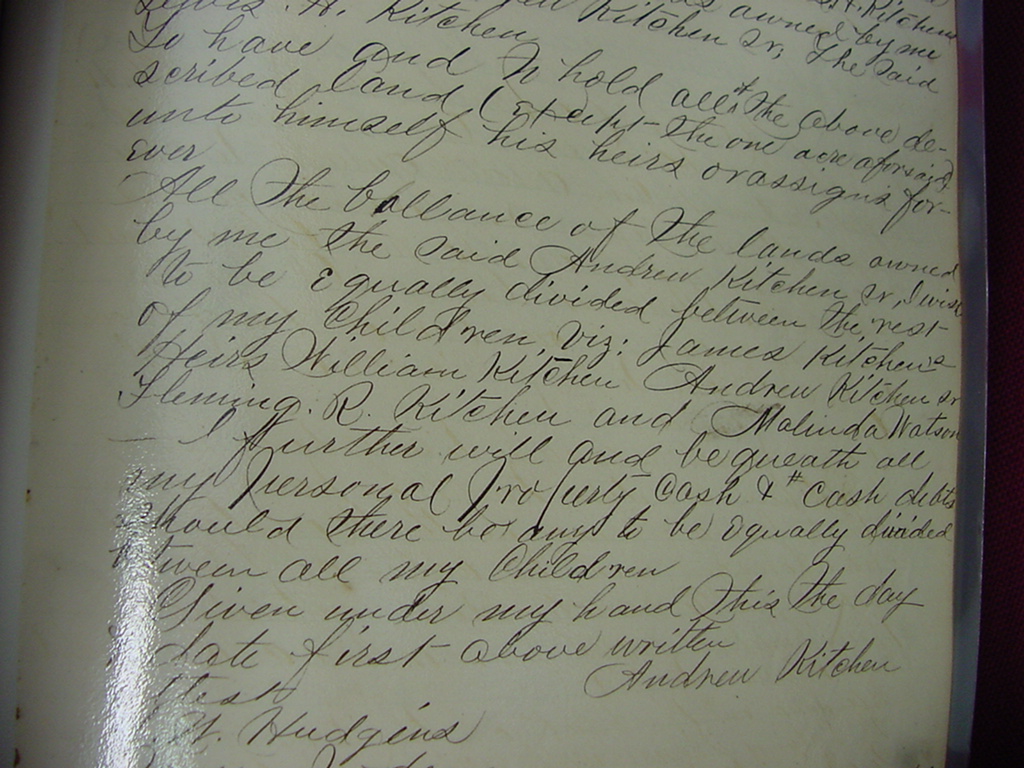 Lewis. H. Kitchen
Kitchen's owned by me
To have and to hold all the above de-
scribed land (Except the one acre aforesaid
unto himself his heirs or assigns for-
ever
All the ballance of the lands owned
by me the said Andrew Kitchen Sr. I wish
to be equally divided between the rest
of my Children viz; James Kitchens
Heirs William Kitchen Andrew Kitchen Jr
Fleming. R. Kitchen and Malinda Watson
I further will and bequeath all
my personal Property Cash & Cash debts
should there be any to be equally divided
tween all my Children
Given under my hand this the day
date first above written
Andrew Kitchen
Hudgins